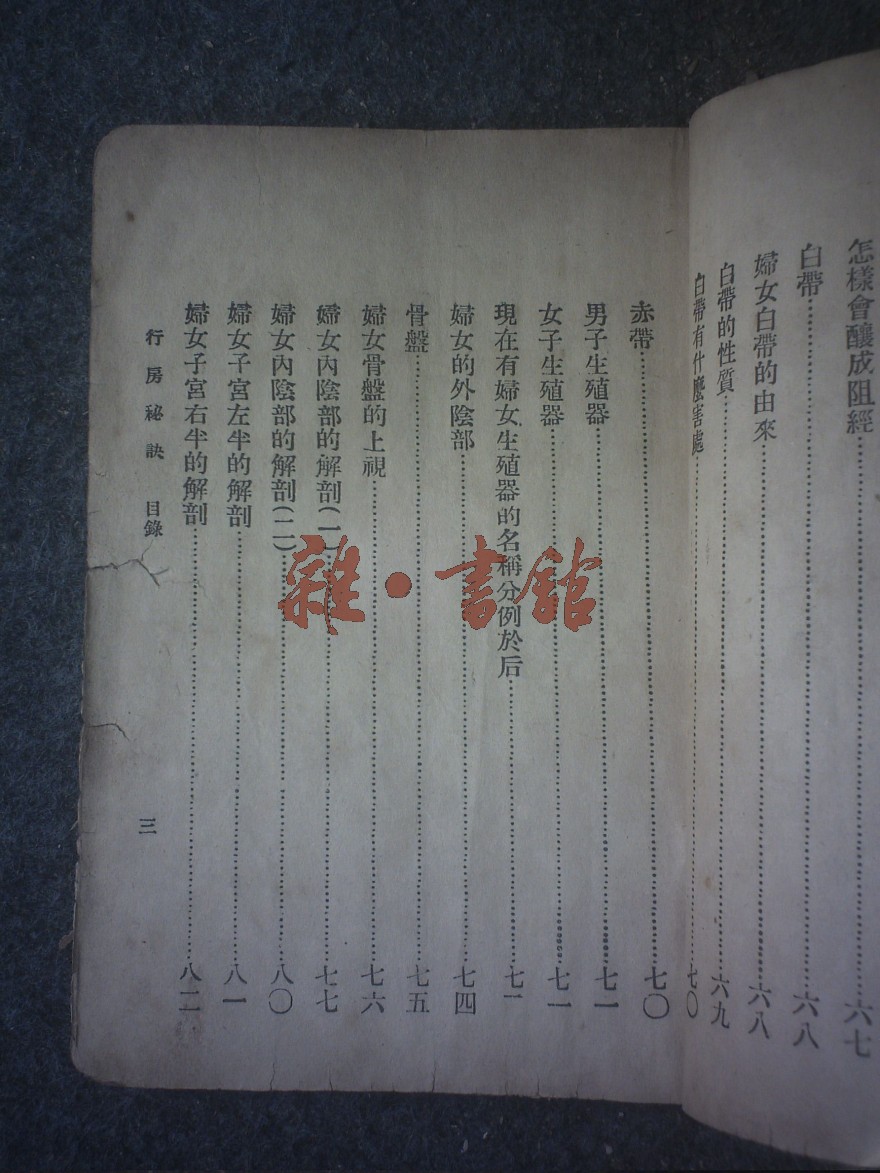 怎樣會釀成阻經……六七
白帶……六八
婦女白帶的由來……六八
白帶的性質……六九
白帶有什麼害處……七〇
赤帶……七〇
男子生殖器……七一
女子生殖器……七一
現在有婦女生殖器的名稱分例於后……七一
婦女的外陰部……七四
骨盤……七五
婦女骨盤的上視……七六
婦女內陰部的解剖(一)……七七
婦女內陰部的解剖(二)……八〇
婦女子宮左半的解剖……八一
婦女子宮右半的解剖……八二
行房祕訣 目錄 三
雜·書館